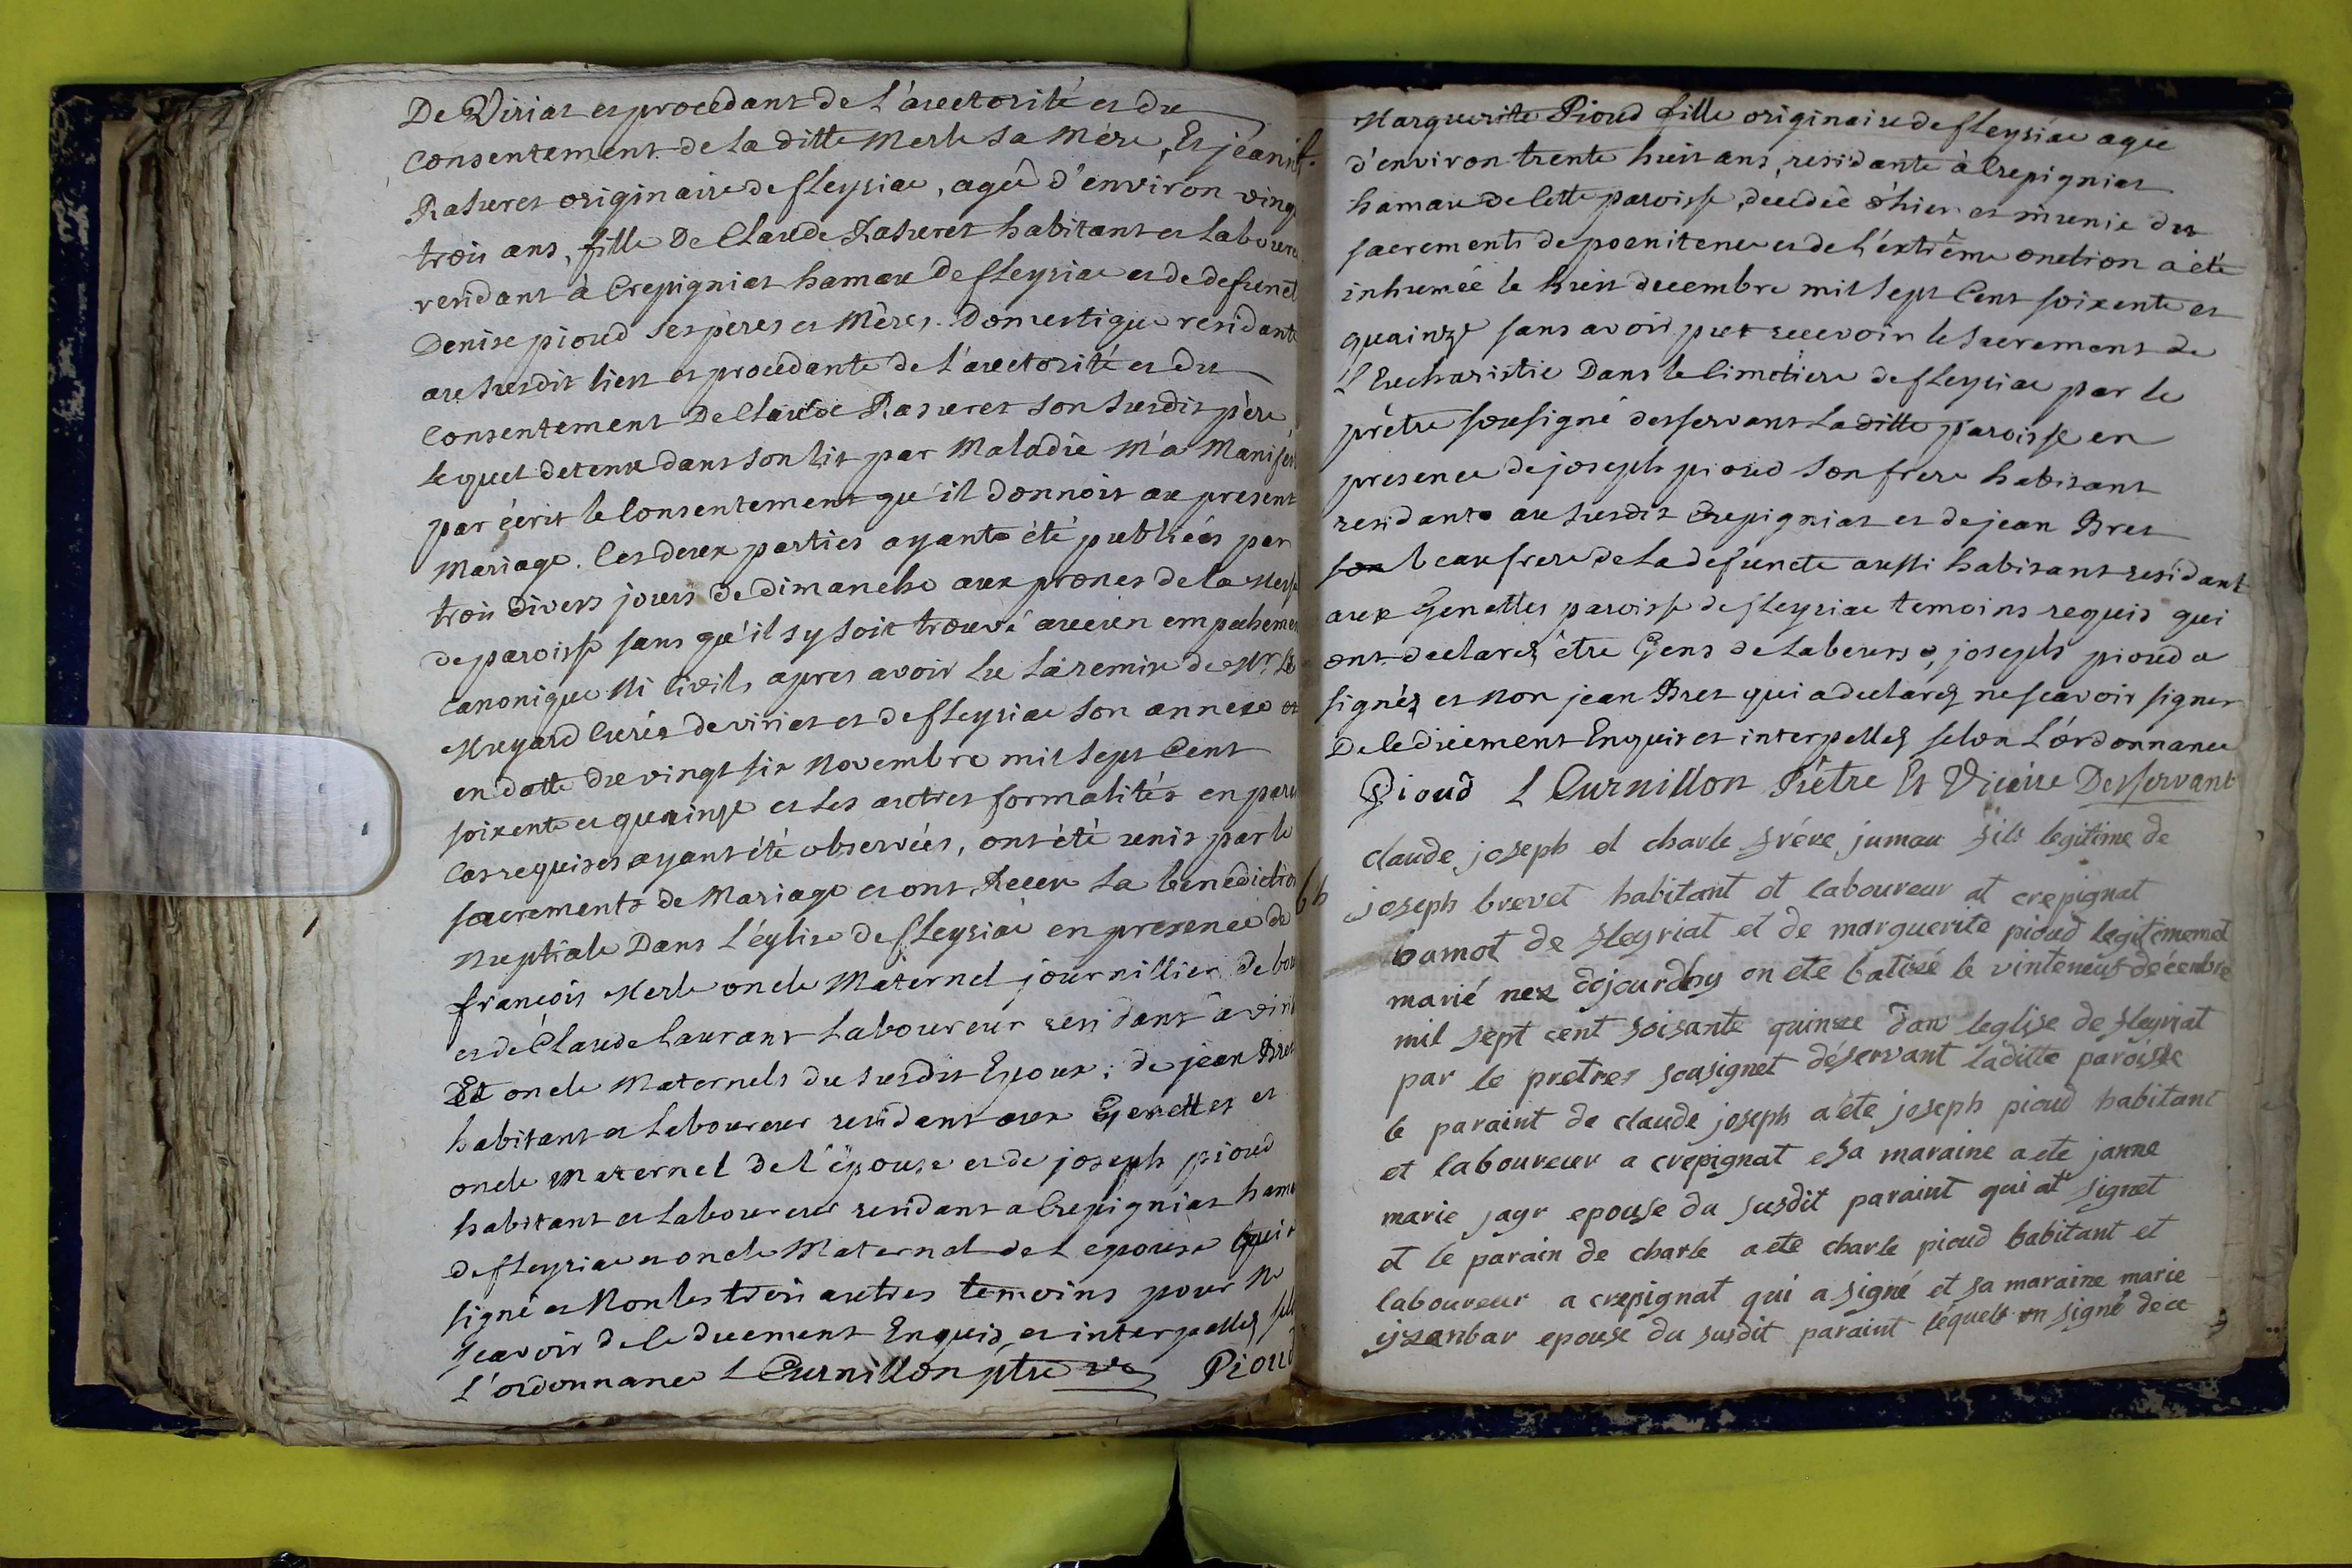 De Viriat et procedant de l'auctorité et du
Consentement de la ditte Merle sa Mere, Et jeanne
Rasuret originaire de fleyriac, agée d'environ vingt
trois ans, fille De Claude Rasuret habitant et Laboureur
residant à Crepigniat hamau de fleyriac et de defunct
Denise pioud ses pères et Mères. Domestique residante
au susdit lieu et procedante de l'auctorité et du
Consentement De Claude Rasuret son susdit père
lequel detenu dans son lit par Maladie m'a Manifes
par écrit le Consentement qu'il donnoit au present
Mariage. Ces deux parties ayants été publiées par
trois divers jours de dimanche aux prones de la Messe
de paroisse sans qu'il sy soit trouvé aucun empechement
Canonique Ni Civils, apres avoir lu la remise de Mr.
Muyard Curés de viriat et de fleyriac son annexe et
en datte du vingt six Novembre mil sept Cent
soixente et quainze et les autres formalités en pareil
Cas requises ayant été observées, ont été unis par le
sacrements de Mariage et ont Receu la benediction
Nuptiale Dans l'église de fleyriac en presence de
françois Merle oncle Maternel journillier de bou
et de Claude Laurant Laboureur residant à viri
Et oncle Maternels du susdit Epoux; de jean Bret
habitant et Laboureur residant aux Genettes et
oncle Maternel de l'épouse et de joseph pioud
habitant et Laboureur residant a Crepigniat hama
de fleyriac et oncle Maternel de l epouse qui
signé et Non les trois autres temoins pour Ne
scavoir de le duement Enquis et interpellez sel
l'ordonnance L Curnillon ptre vic Pioud
Marguerite Pioud fille originaire de fleyriac agée
d'environ trente huit ans, residante à Crepigniat
hamau de Cette paroisse, decedée d'hier et munie du
sacrements de poenitence et de l'extrême onction a été
inhumée le huit decembre mil sept Cent soixente et
quainze sans avoir put recevoir le sacrement de
l'Eucharistie Dans le Cimetiere de fleyriac par le
prêtre sousigné desservant Laditte paroisse en
presence de joseph pioud son frere habitant
residant au susdit Crepigniat et de jean Bret
son beaufrere de la defuncte aussi habitant residant
aux Genettes paroisse de fleyriac temoins requis qui
ont declarez être Gens de Labeurs, joseph pioud a
signéz et Non jean Bret qui a declarez ne scavoir signer
De le düement Enquis et interpellez selon l'ordonnance
Pioud L Curnillon Prêtre Et Vicaire Desservant
claude joseph et charle frére jumau fils legitime de
joseph brevet habitant et laboureur at crepignat
bamot de fleyriat et de marguerite pioud legitimemet
marié nez dojourdhy on ete batizé le vinteneuf décembre
mil sept cent soisante quinze dan leglise de fleyriat
par le pretres sousignet déservant laditte paroisse
le paraint de claude joseph a ete joseph pioud habitant
et laboureur a crepignat e sa maraine a ete janne
marie jayr epouse du susdit paraint qui at signet
et le parain de charle a eté charle pioud habitant et
laboureur a crepignat qui a signé et sa maraine marie
yzanbar epouse du susdit paraint léquels on signé de ce